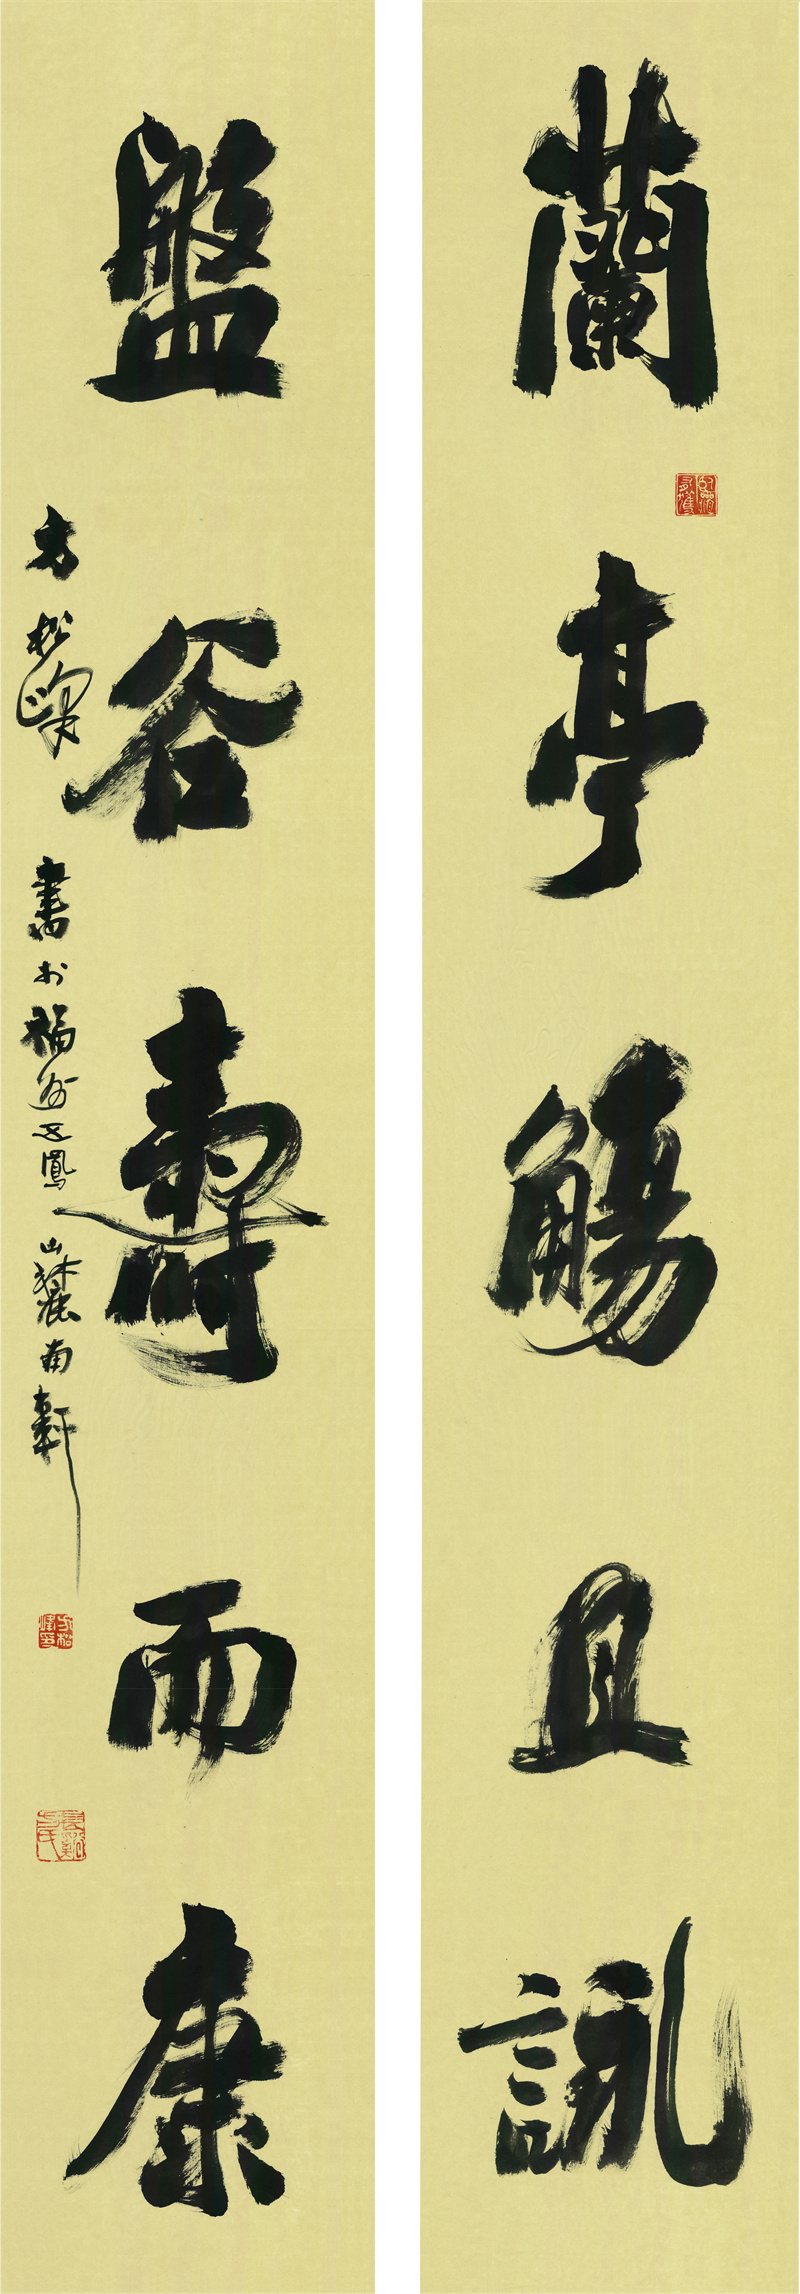 蘭亭觴且詠
盤谷壽而康
方松峰書於福州五鳳山麓南軒